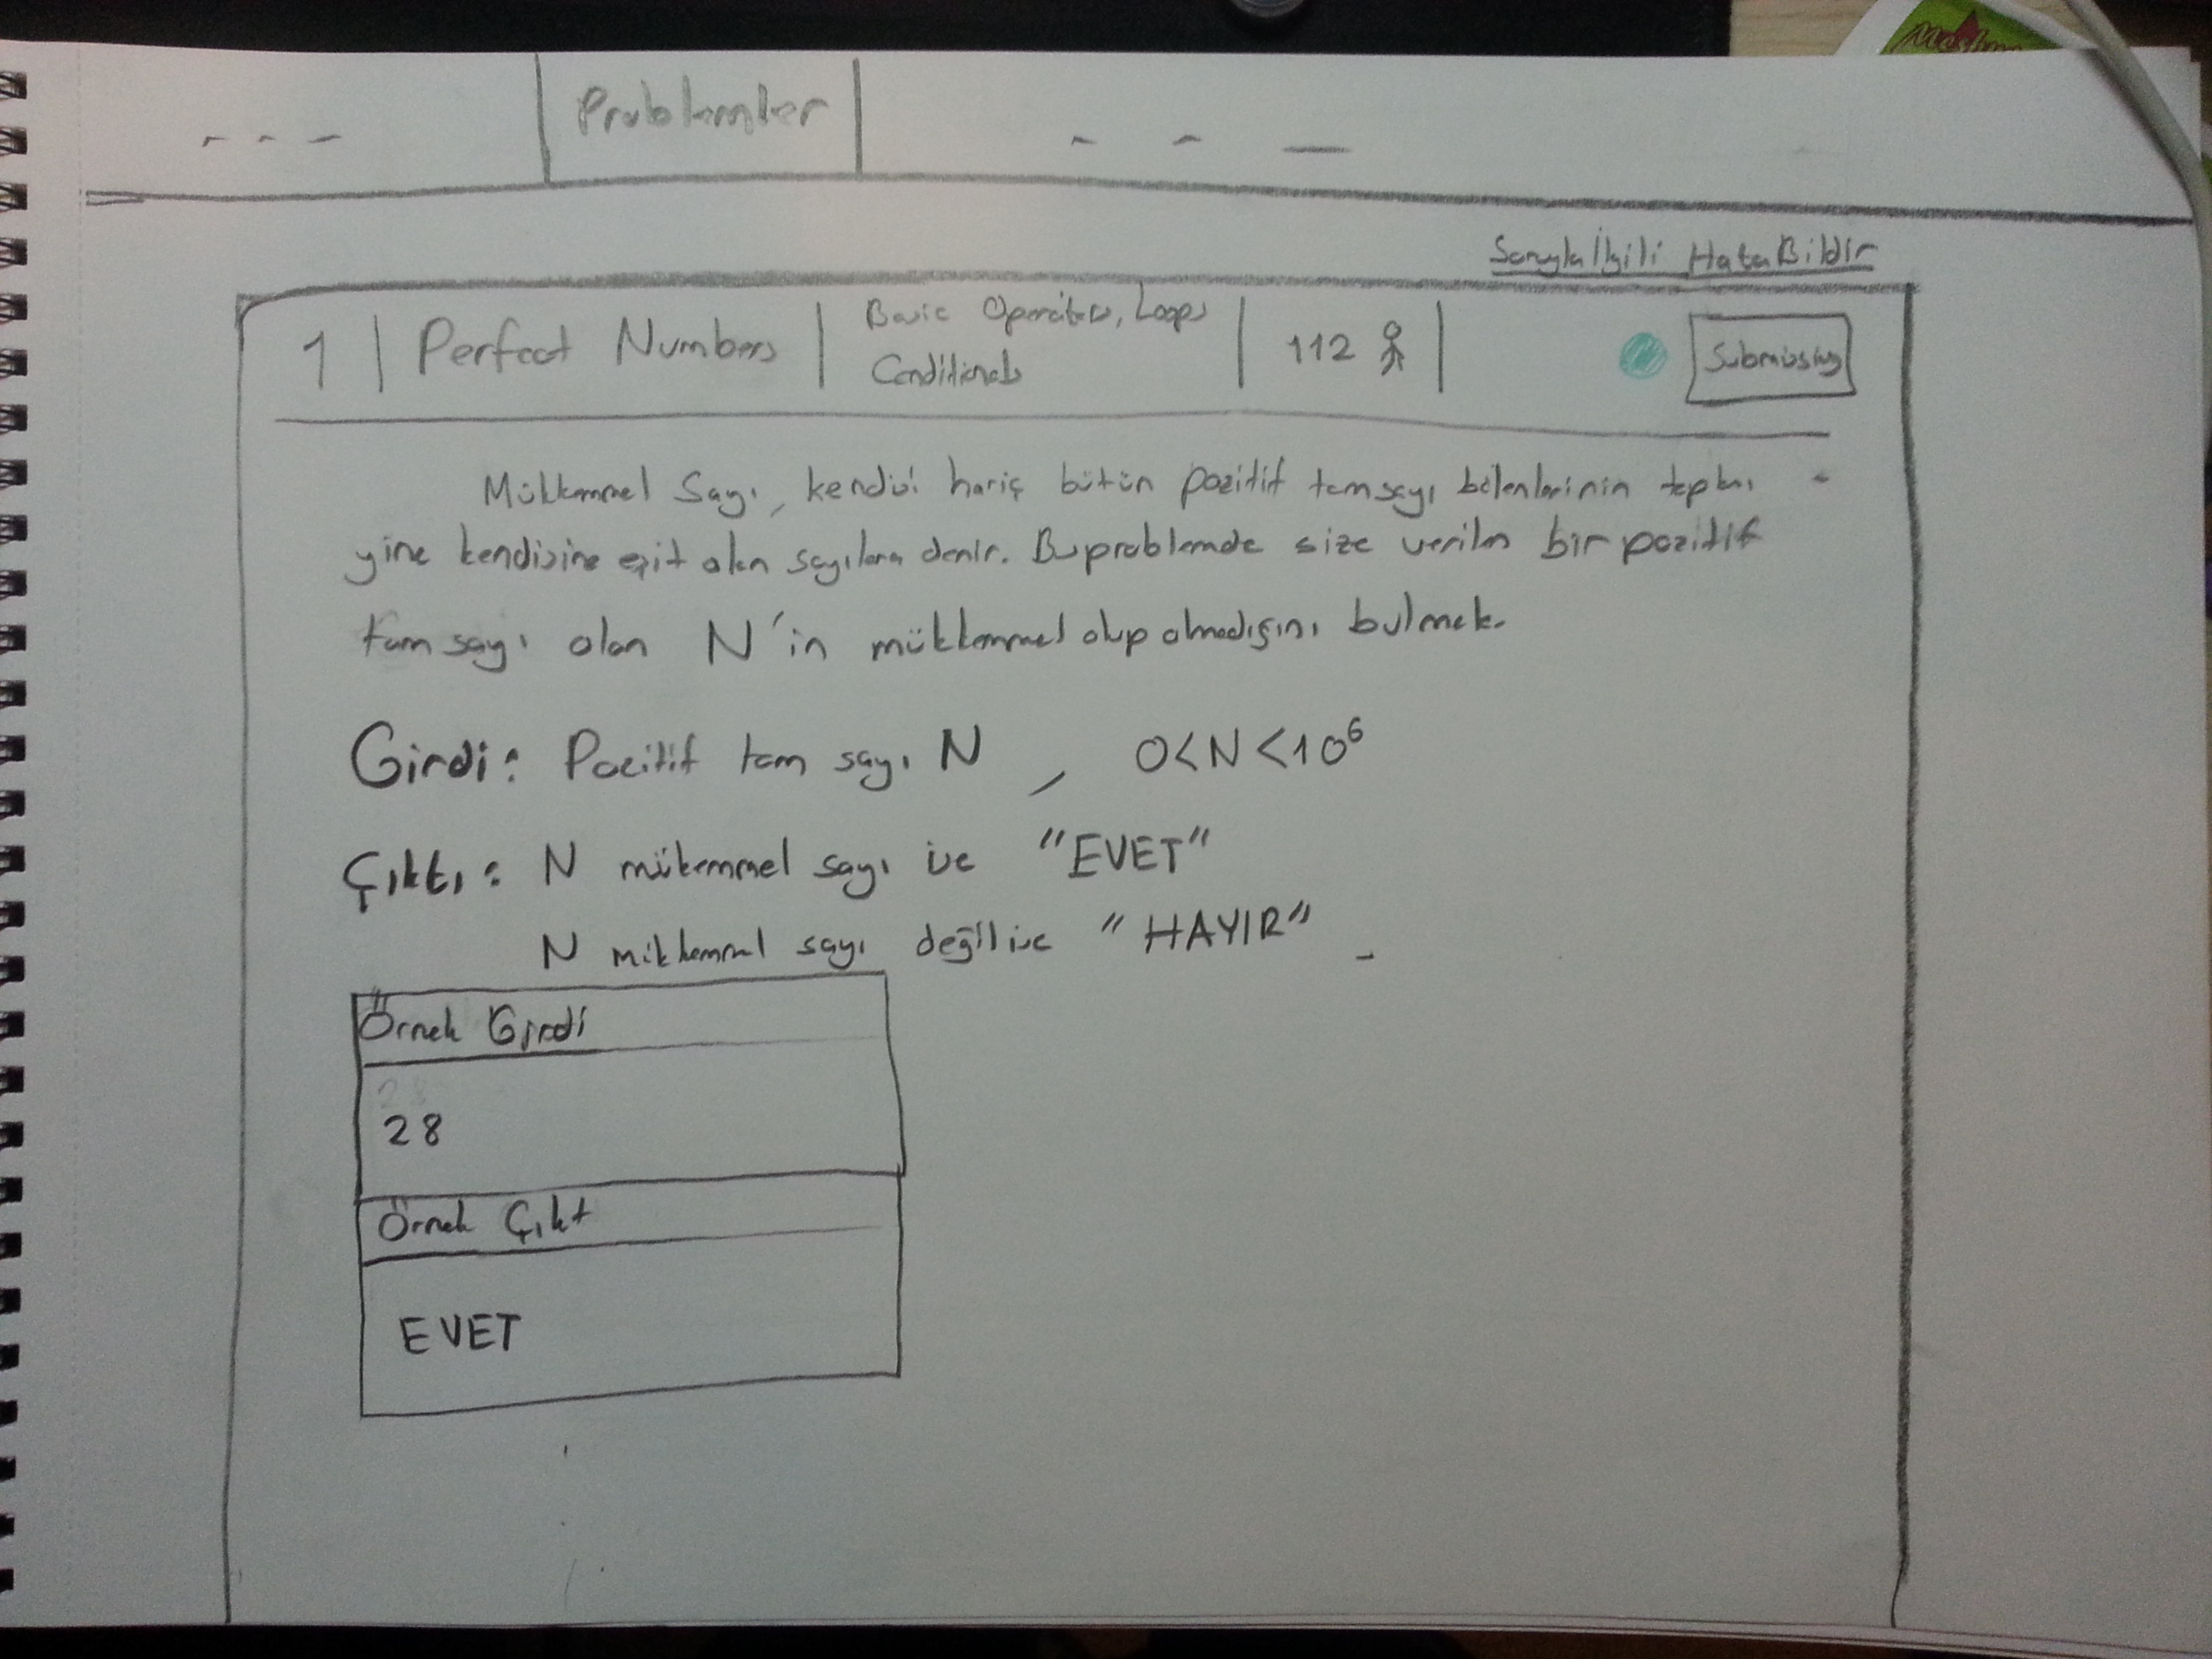 Problemler
Soruyla İlgili Hata Bildir
1 | Perfect Numbers | Basic Operators, Loops | 112 Submissions
Conditionals
Mükkemmel Sayı, kendisi hariç bütün pozitif tam sayı bölenlerinin toplamı
yine kendisine eşit olan sayılara denir. Bu problemde size verilen bir pozitif
tam sayı olan N'in mükkemmel olup olmadığını bulmak.
Girdi: Pozitif tam sayı N , 0<N<10⁶
Çıktı: N mükemmel sayı ise "EVET"
N mükkemmel sayı değil ise "HAYIR"
Örnek Girdi
28
Örnek Çıktı
EVET